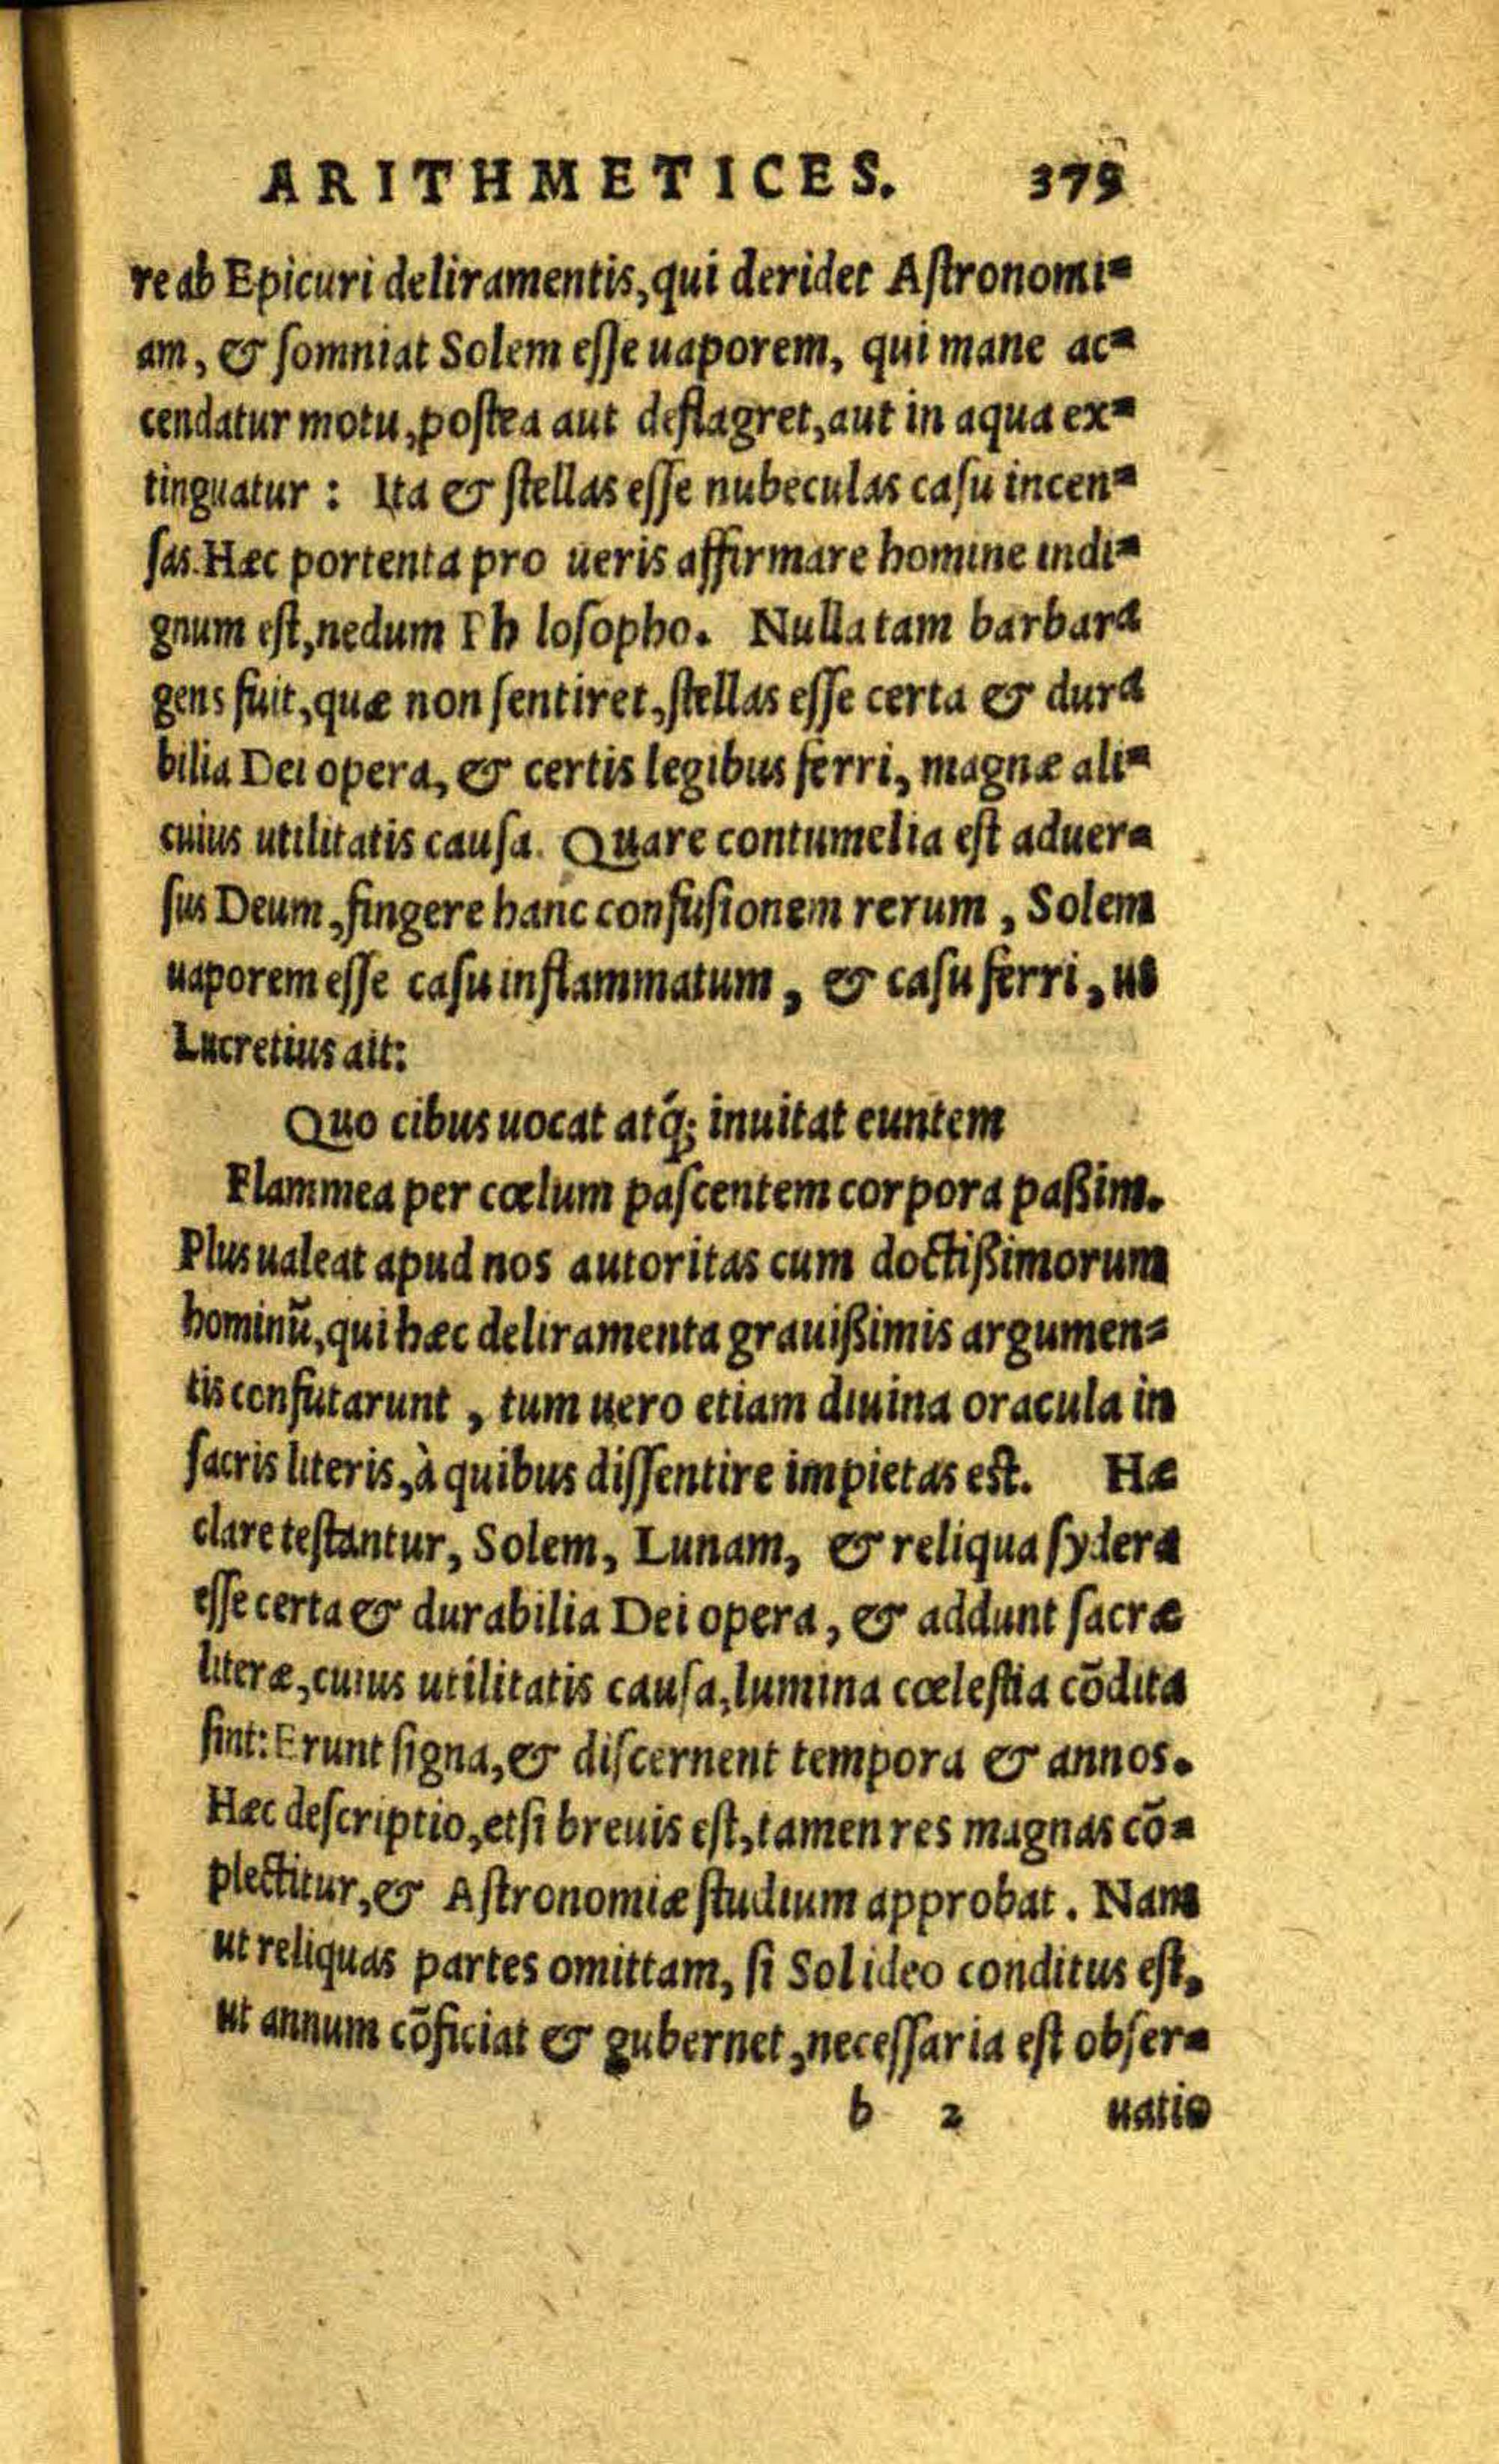 ARITHMETICES. 379
re ab Epicuri deliramentis, qui deridet Aſtronomi⸗
am, & ſomniat Solem eſſe uaporem, qui mane ac⸗
cendatur motu, poſtea aut deflagret, aut in aqua ex⸗
tinguatur : Ita & ſtellas eſſe nubeculas caſu incen⸗
ſas. Hæc portenta pro ueris affirmare homine indi⸗
gnum eſt, nedum Ph loſopho. Nulla tam barbara
gens fuit, quæ non ſentiret, ſtellas eſſe certa & dura
bilia Dei opera, & certis legibus ferri, magnæ ali⸗
cuius utilitatis cauſa. Quare contumelia eſt aduer⸗
ſus Deum, fingere hanc confuſionem rerum, Solem
uaporem eſſe caſu inflammatum, & caſu ferri, ut
Lucretius ait:
Quo cibus uocat atq́; inuitat euntem
Flammea per cœlum paſcentem corpora paßim.
Plus ualeat apud nos autoritas cum doctißimorum
hominũ, qui hæc deliramenta grauißimis argumen⸗
tis confutarunt, tum uero etiam diuina oracula in
ſacris literis, à quibus diſſentire impietas est. Hæ
clare teſtantur, Solem, Lunam, & reliqua ſydera
eſſe certa & durabilia Dei opera, & addunt ſacræ
literæ, cuius utilitatis cauſa, lumina cœleſtia cõdita
ſint: Erunt ſigna, & diſcernent tempora & annos.
Hæc deſcriptio, etſi breuis eſt, tamen res magnas cõ⸗
plectitur, & Aſtronomiæ ſtudium approbat. Nam
ut reliquas partes omittam, ſi Sol ideo conditus eſt,
ut annum cõficiat & gubernet, neceſſaria eſt obſer⸗
b 2 uatio